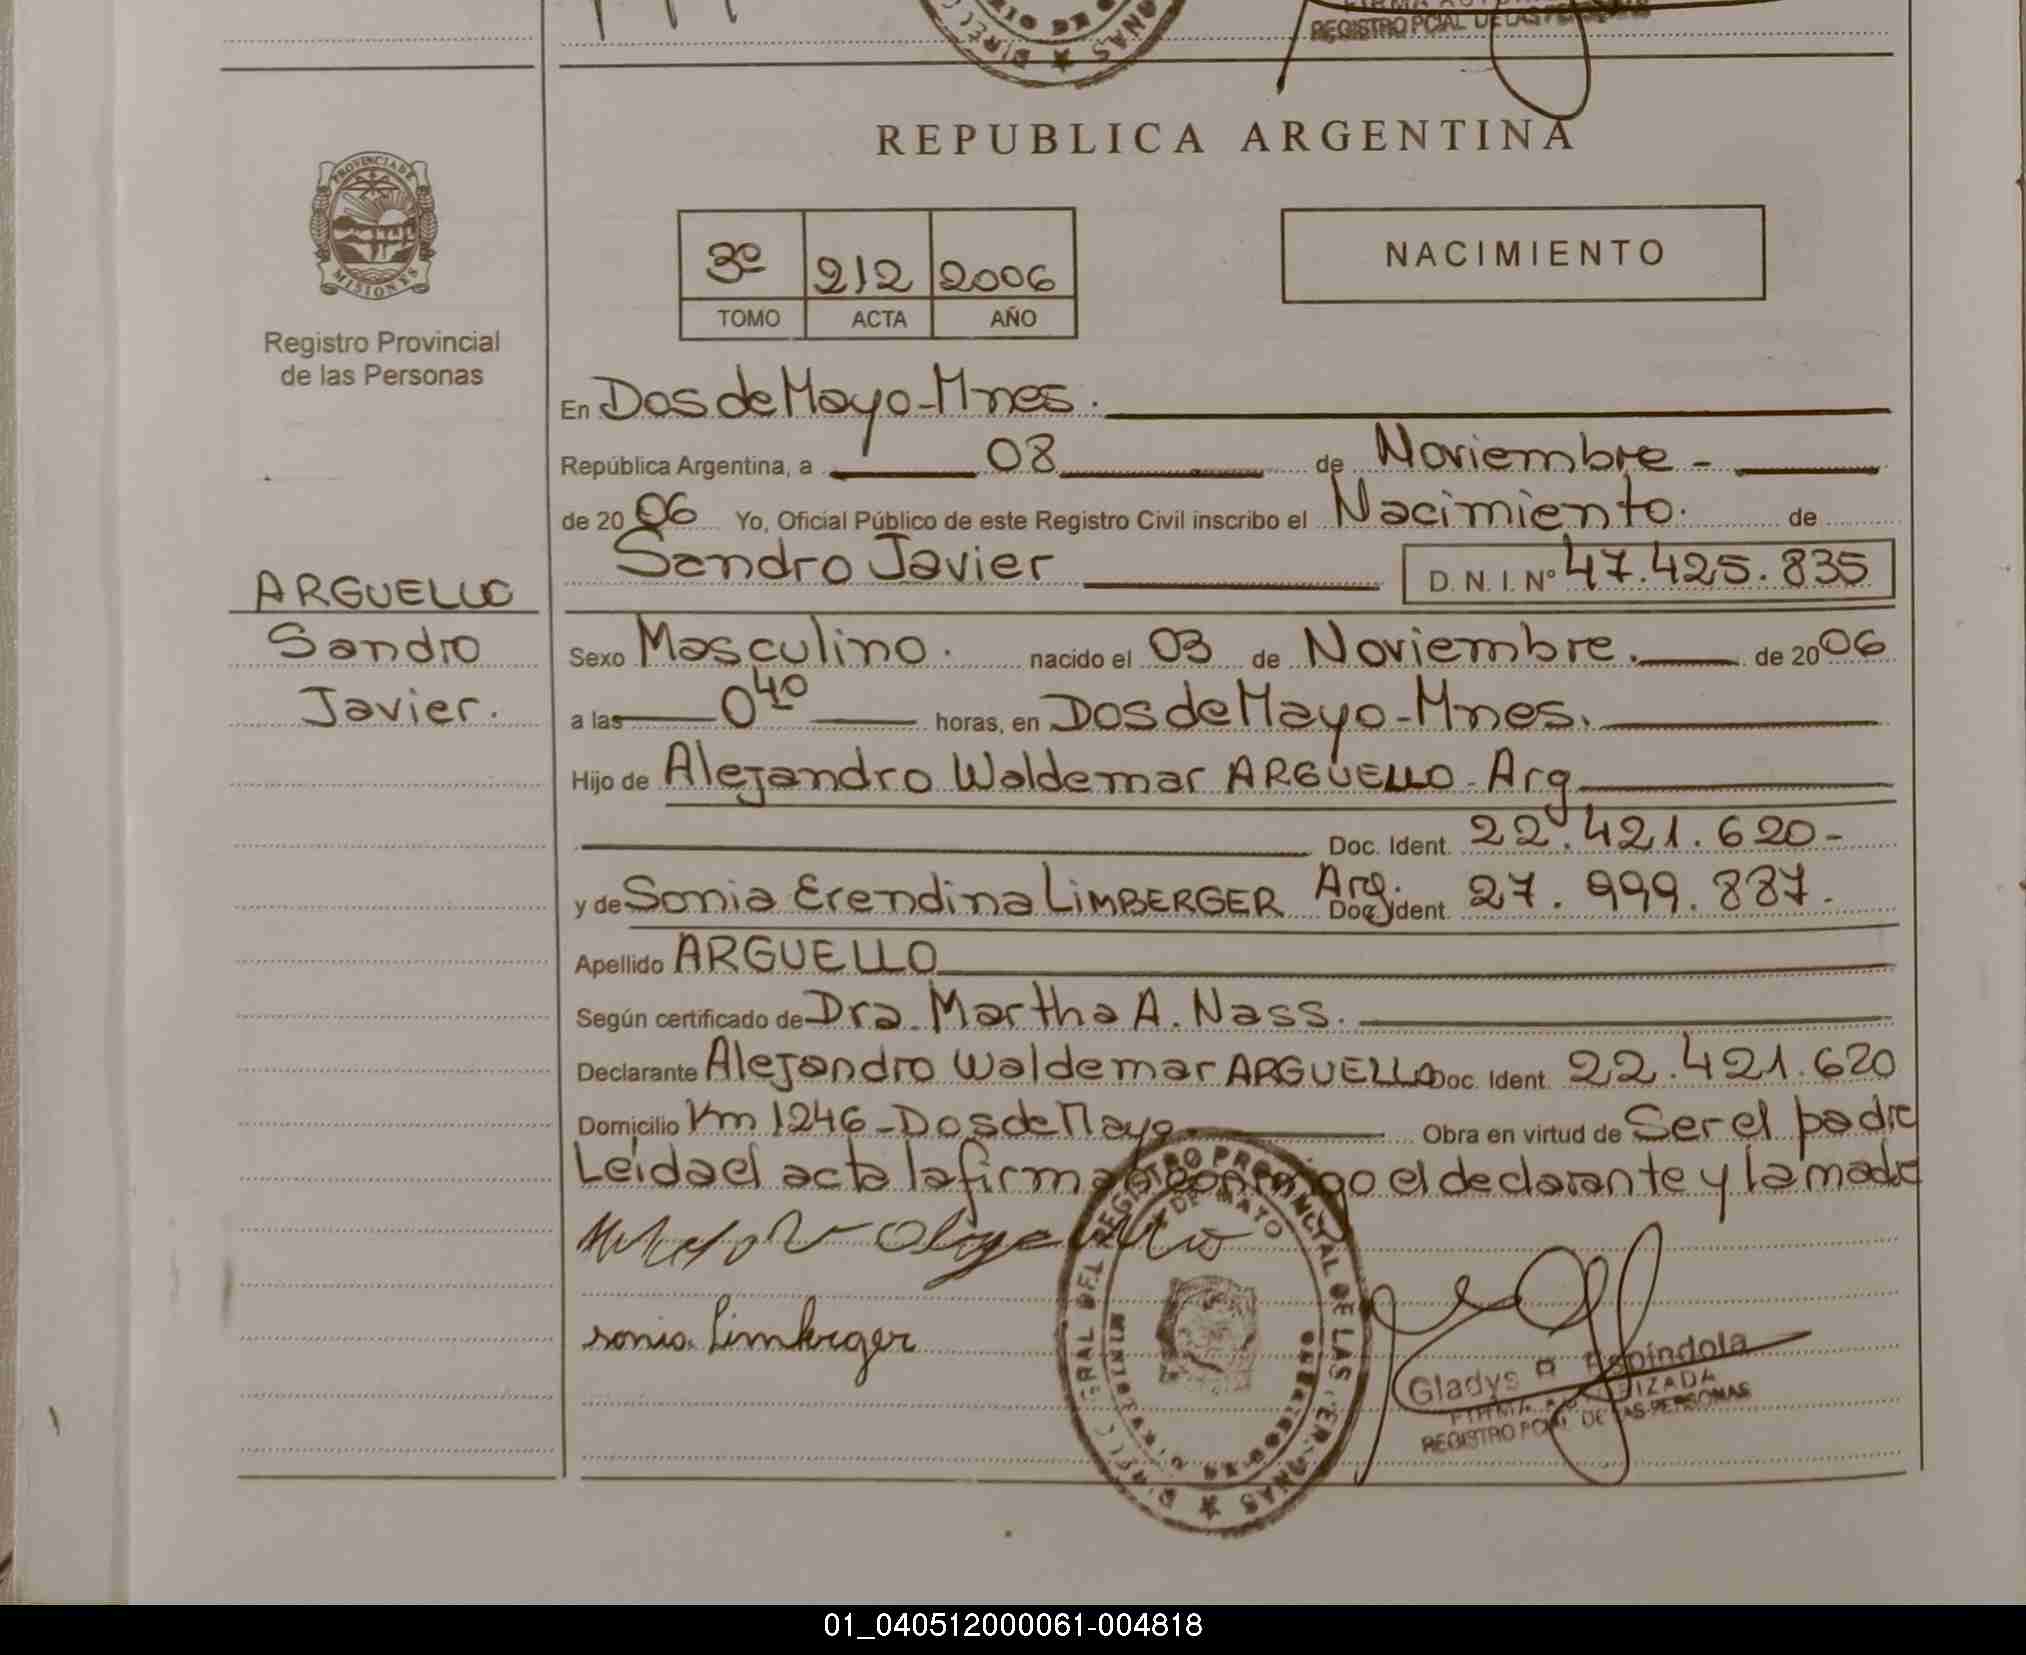 REGISTRO PCIAL DE LAS PERSONAS
REPUBLICA ARGENTINA
PROVINCIA DE MISIONES
Registro Provincial
de las Personas
3º 212 2006
TOMO ACTA AÑO
NACIMIENTO
En Dos de Mayo - Mnes.
República Argentina, a 08 de Noviembre -
de 2006 Yo, Oficial Público de este Registro Civil inscribo el Nacimiento. de
Sandro Javier D. N. I. Nº 47.425.835
ARGUELLO
Sandro
Javier.
Sexo Masculino. nacido el 03 de Noviembre. de 2006
a las 0 40 horas, en Dos de Mayo - Mnes.
Hijo de Alejandro Waldemar ARGUELLO - Arg
Doc. Ident. 22.421.620-
y de Sonia Erendina LIMBERGER Arg. Doc. Ident. 27.999.887.
Apellido ARGUELLO
Según certificado de Dra. Martha A. Nass.
Declarante Alejandro Waldemar ARGUELLO Doc. Ident. 22.421.620
Domicilio Km 1246 - Dos de Mayo Obra en virtud de Ser el padre
Leida el acta la firman conmigo el declarante y la madre
sonia Limberger
Gladys Espindola
FIRMA AUTORIZADA
REGISTRO PCIAL DE LAS PERSONAS
01_040512000061-004818